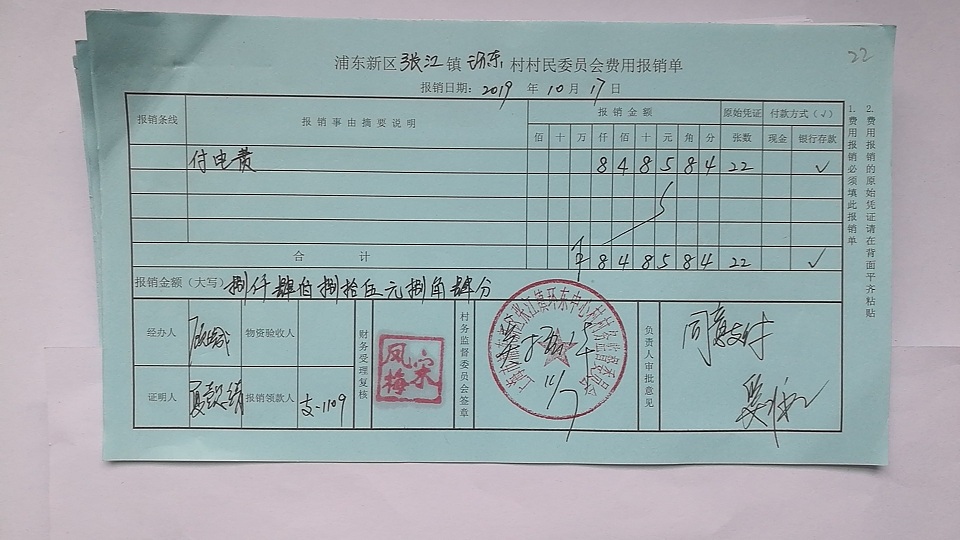 22
浦东新区张江镇环东村村民委员会费用报销单
报销日期：2019年10月17日
报销条线 报销事由摘要说明 报销金额 原始凭证 付款方式（√）
佰 十 万 仟 佰 十 元 角 分 张数 现金 银行存款
付电费 8 4 8 5 8 4 22 √
合计 ¥ 8 4 8 5 8 4 22 √
报销金额（大写） 捌仟肆佰捌拾伍元捌角肆分
经办人 物资验收人
证明人 报销领款人 支-1109
财务受理复核
宋凤梅
村务监督委员会签章
张江镇环东中心村村务监督委员会
11/7
负责人审批意见
同意支付
1.费用报销必须填此报销单
2.费用报销的原始凭证请在背面平齐粘贴